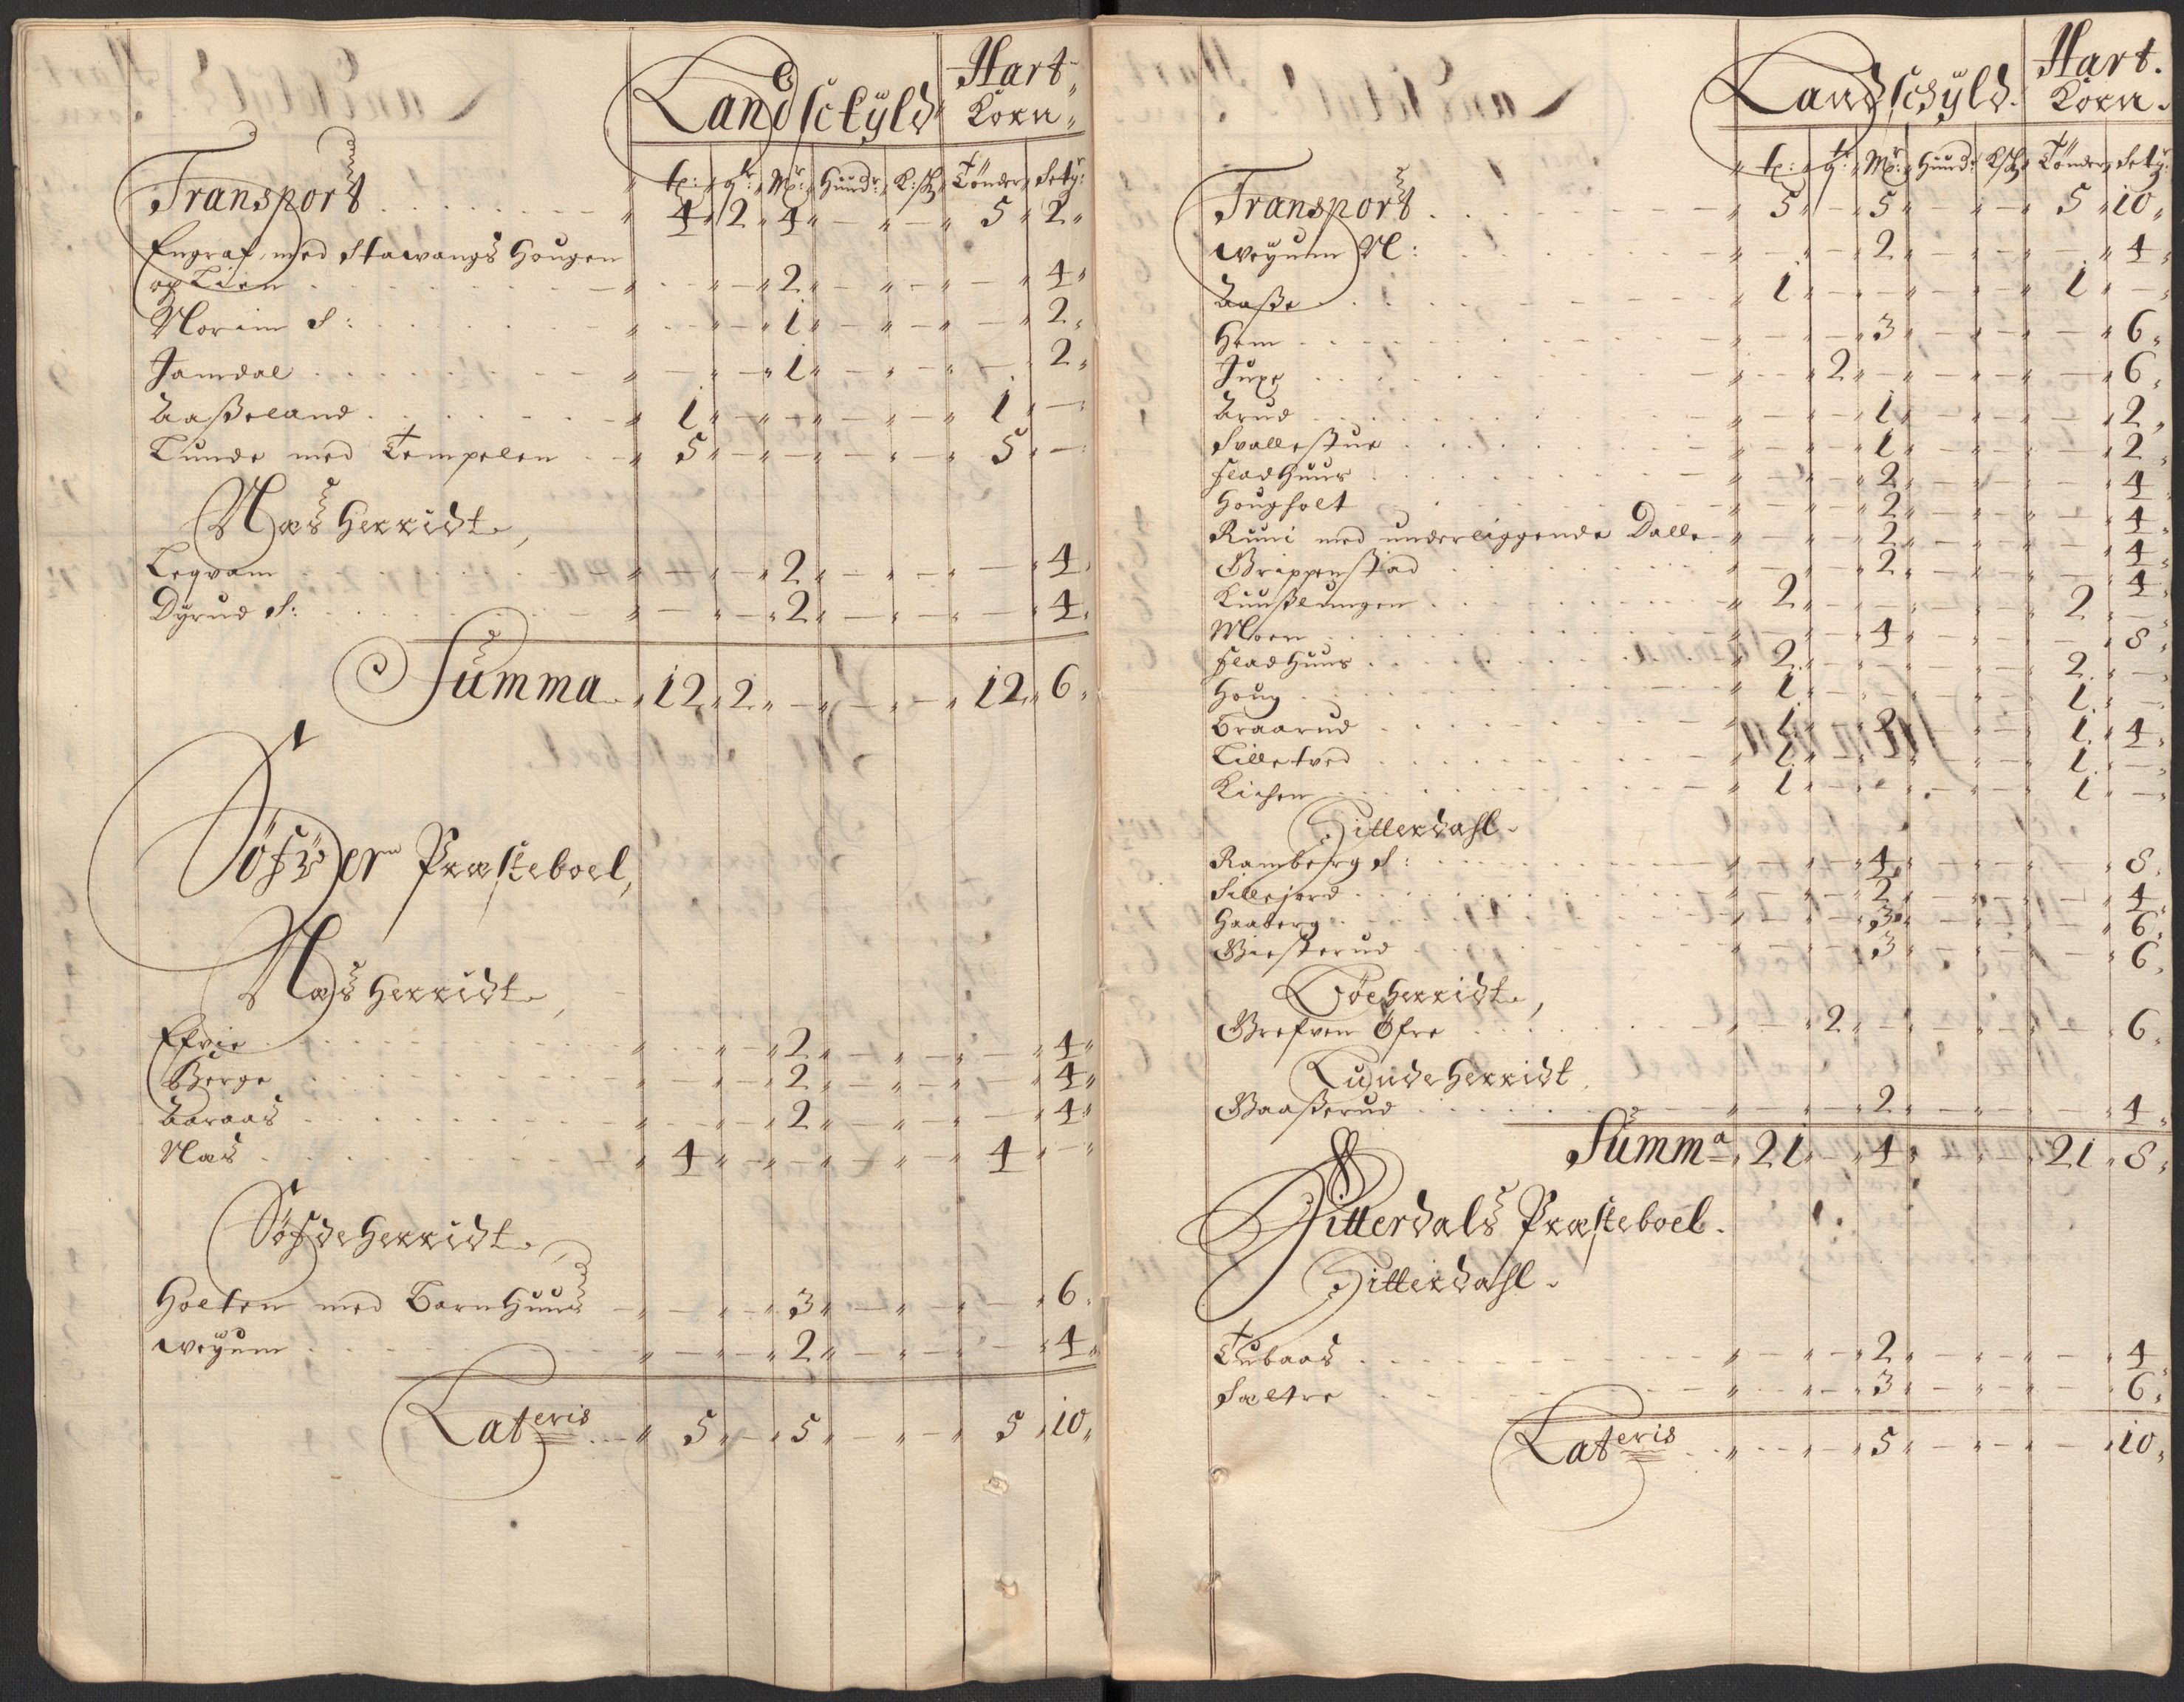 Landskÿld Hart Korn
tp: qr: Mk: Hund: K:sk Tönder Setg:
Transport 4 2 4 5 2
Engraf, med Stawangs Hougen
og Lien 2 4
Norim S: 1 2
Jamdal 1 2
Aaßeland 1 1
Lunde med Tempelen 5 5
Næs Herridt
Legvam 2 4
Dÿrud S: 2 4
Summa 12 2 12 6
Præsteboel
Næs Herridt
Efvie 2 4
Berge 2 4
Aaraas 2 4
Næs 4 4
Söfde Herridt
Holten med Barnhuus 3 6
Weÿum 2 4
Lateris 5 5 5 10
Landskÿld Hart. Korn.
tp: qr: Mk: Hund: K:sk Tönder Setg:
Transport 5 5 5 10
Weÿum N: 2 4
Aaße 1 1
Hem 3 6
Jupe 2 6
Arud 1 2
Svallestue 1 2
Fladhuus 2 4
Hougholt 2 4
Runi med underliggende Dalle 2 4
Grippenstad 2 4
Kuußlungen 2 2
Moen 4 8
Fladhuus 2 2
Houg 1 1
Braarud 1 2 1 4
Lilletved 1 1
Kiesen 1 1
Hitterdahl
Ramberg S: 4 8
Sillejord 2 4
Haaberg 3 6
Giesterud 3 6
Böe Herridt
Grefven Öfre 2 6
Lunde Herridt
Gaaßerud 2 4
Summa 21 4 21 8
Hitterdals Præsteboel
Hitterdahl
Tubaas 2 4
Sæltre 3 6
Lateris 5 10